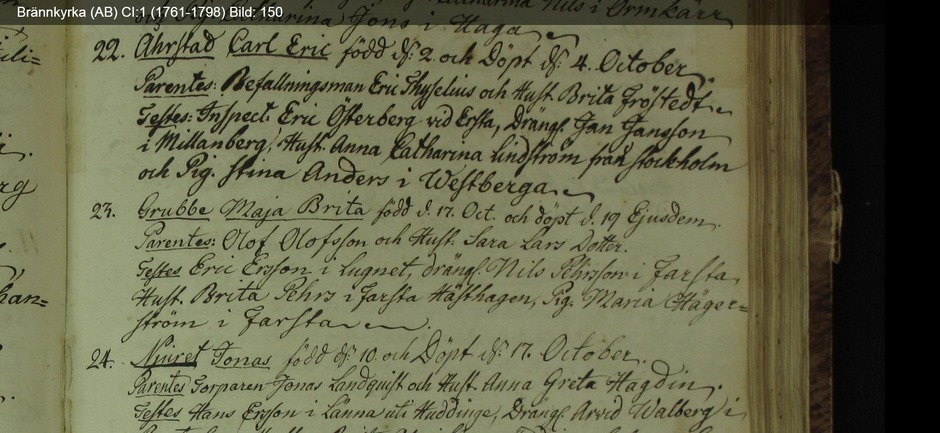 Brännkyrka (AB) CI:1 (1761-1798) Bild: 150
Jons i Haga
22. Åhrstad Carl Eric född d: 2. och Döpt d: 4. October
Parentes: Befallningsman Eric Thyselius och Hust. Brita Fröstedt
Testes: Inspect: Eric Österberg vid Ersta, Dräng. Jan Jansson
i Millanberg, Hust. Anna Catharina Lindström från Stockholm
och Pig. Stina Anders i Westberga
23. Grubbe Maja Brita född d. 17. Oct. och döpt d. 19 Ejusdem.
Parentes: Olof Olofsson och Hust. Sara Lars Dotter.
Testes Eric Ersson i Lugnet, dräng. Nils Pehrsson i Farsta
Hust. Brita Pehrs i Farsta Hästhagen, Pig. Maria Häger=
ström i Farsta.
24. Niuret Jonas född d: 10. och Döpt d: 17. October.
Parentes Torparen Jonas Landquist och Hust. Anna Greta Hagdin.
Testes Hans Ersson i Länna uti Huddinge, Dräng. Arvid Walberg i